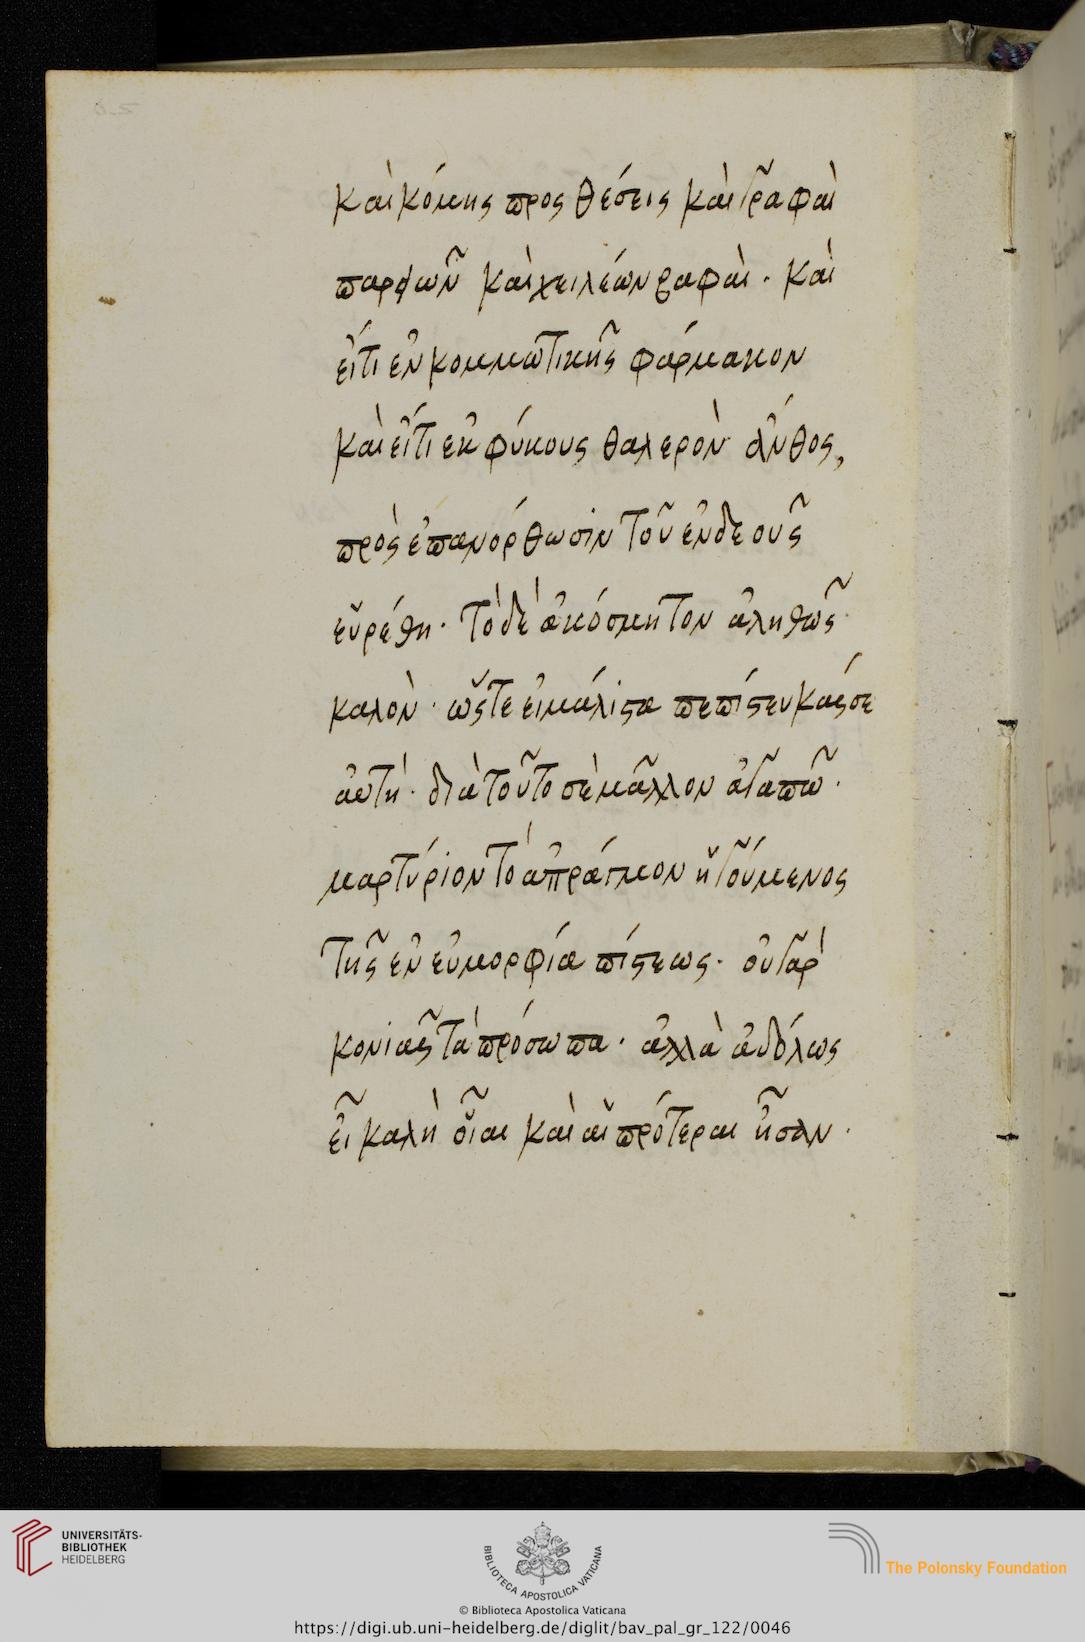 καὶ κόμης προς θέσεις καὶ γραφαὶ
παρφων͂ καὶ χειλέων βαφαὶ. καὶ
εἴτι ἐν κομμωτικῆς φάρμακον
καὶ εἴτι ἐκ φύκους θαλερὸν ἄνθος,
πρὸς ἐπανόρθωσιν τοῦ ἐνδεοῦς
εὑρέθη. τὸ δὲ ἀκόσμητον ἀληθῶς
καλὸν. ὥςτε εἰ μάλιςα πεπίςευκάς σε
αὐτή. διὰ τοῦτο σὲ μᾶλλον ἀγαπῶ.
μαρτύριον τὸ ἀπράγμον ἡγούμενος
τῆς ἐν εὐμορφία πίςεως. οὐ γὰρ
κονιᾶς τὰ πρόσωπα. ἀλλὰ ἀδόλως
εἶ καλὴ οἷαι καὶ αἱ πρότεραι ἦσαν.
UNIVERSITÄTS-
BIBLIOTHEK
HEIDELBERG
BIBLIOTECA APOSTOLICA VATICANA
The Polonsky Foundation
© Biblioteca Apostolica Vaticana
https://digi.ub.uni-heidelberg.de/diglit/bav_pal_gr_122/0046